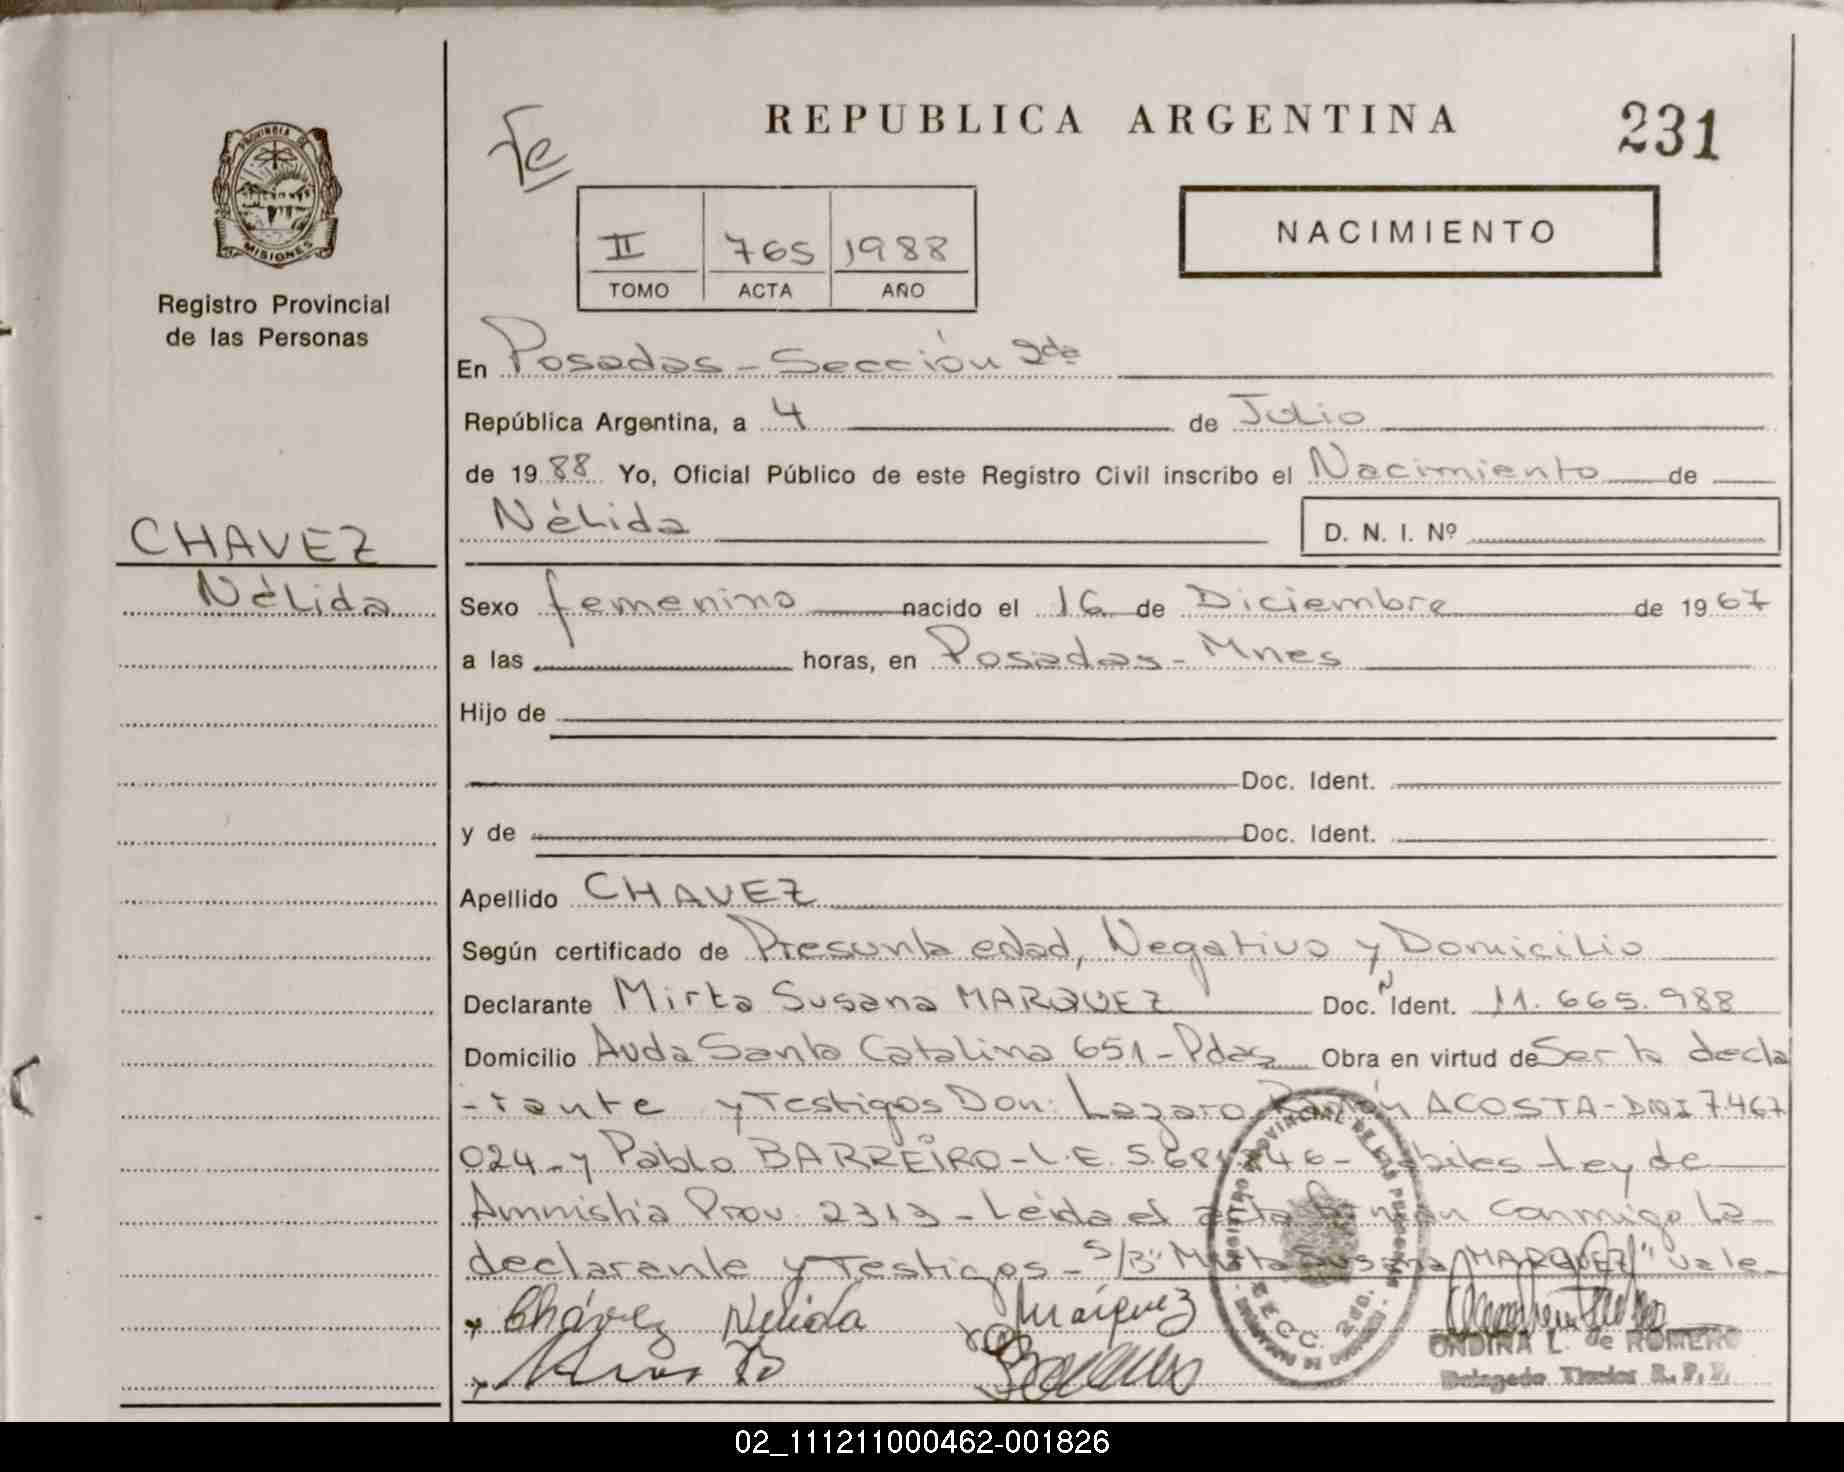 REPUBLICA ARGENTINA
231
Fe
PROVINCIA DE
MISIONES
Registro Provincial
de las Personas
II 765 1988
TOMO ACTA AÑO
NACIMIENTO
En Posadas - Sección 2da
República Argentina, a 4 de Julio
de 1988 Yo, Oficial Público de este Registro Civil inscribo el Nacimiento de
Nélida
D. N. I. Nº
CHAVEZ
Nélida
Sexo femenino nacido el 16 de Diciembre de 1967
a las horas, en Posadas - Mnes
Hijo de
Doc. Ident.
y de Doc. Ident.
Apellido CHAVEZ
Según certificado de Presunta edad, Negativo y Domicilio
Declarante Mirta Susana MARQUEZ Doc. Ident. 11.665.988
Domicilio Avda Santa Catalina 651 - Pdas Obra en virtud de Ser la decla
-rante y Testigos Don: Lazaro Ramón ACOSTA - DNI 7467
024 - y Pablo BARREIRO - L.E. - Hábiles - Ley de
Amnistia Prov. 2313 - Leida el acta firman conmigo la
declarante y Testigos - S/B "Mirta Susana MARQUEZ" vale
Chávez Nelida Marquez
ONDINA L. de ROMERO
Delegada Titular R. P. P.
02_111211000462-001826